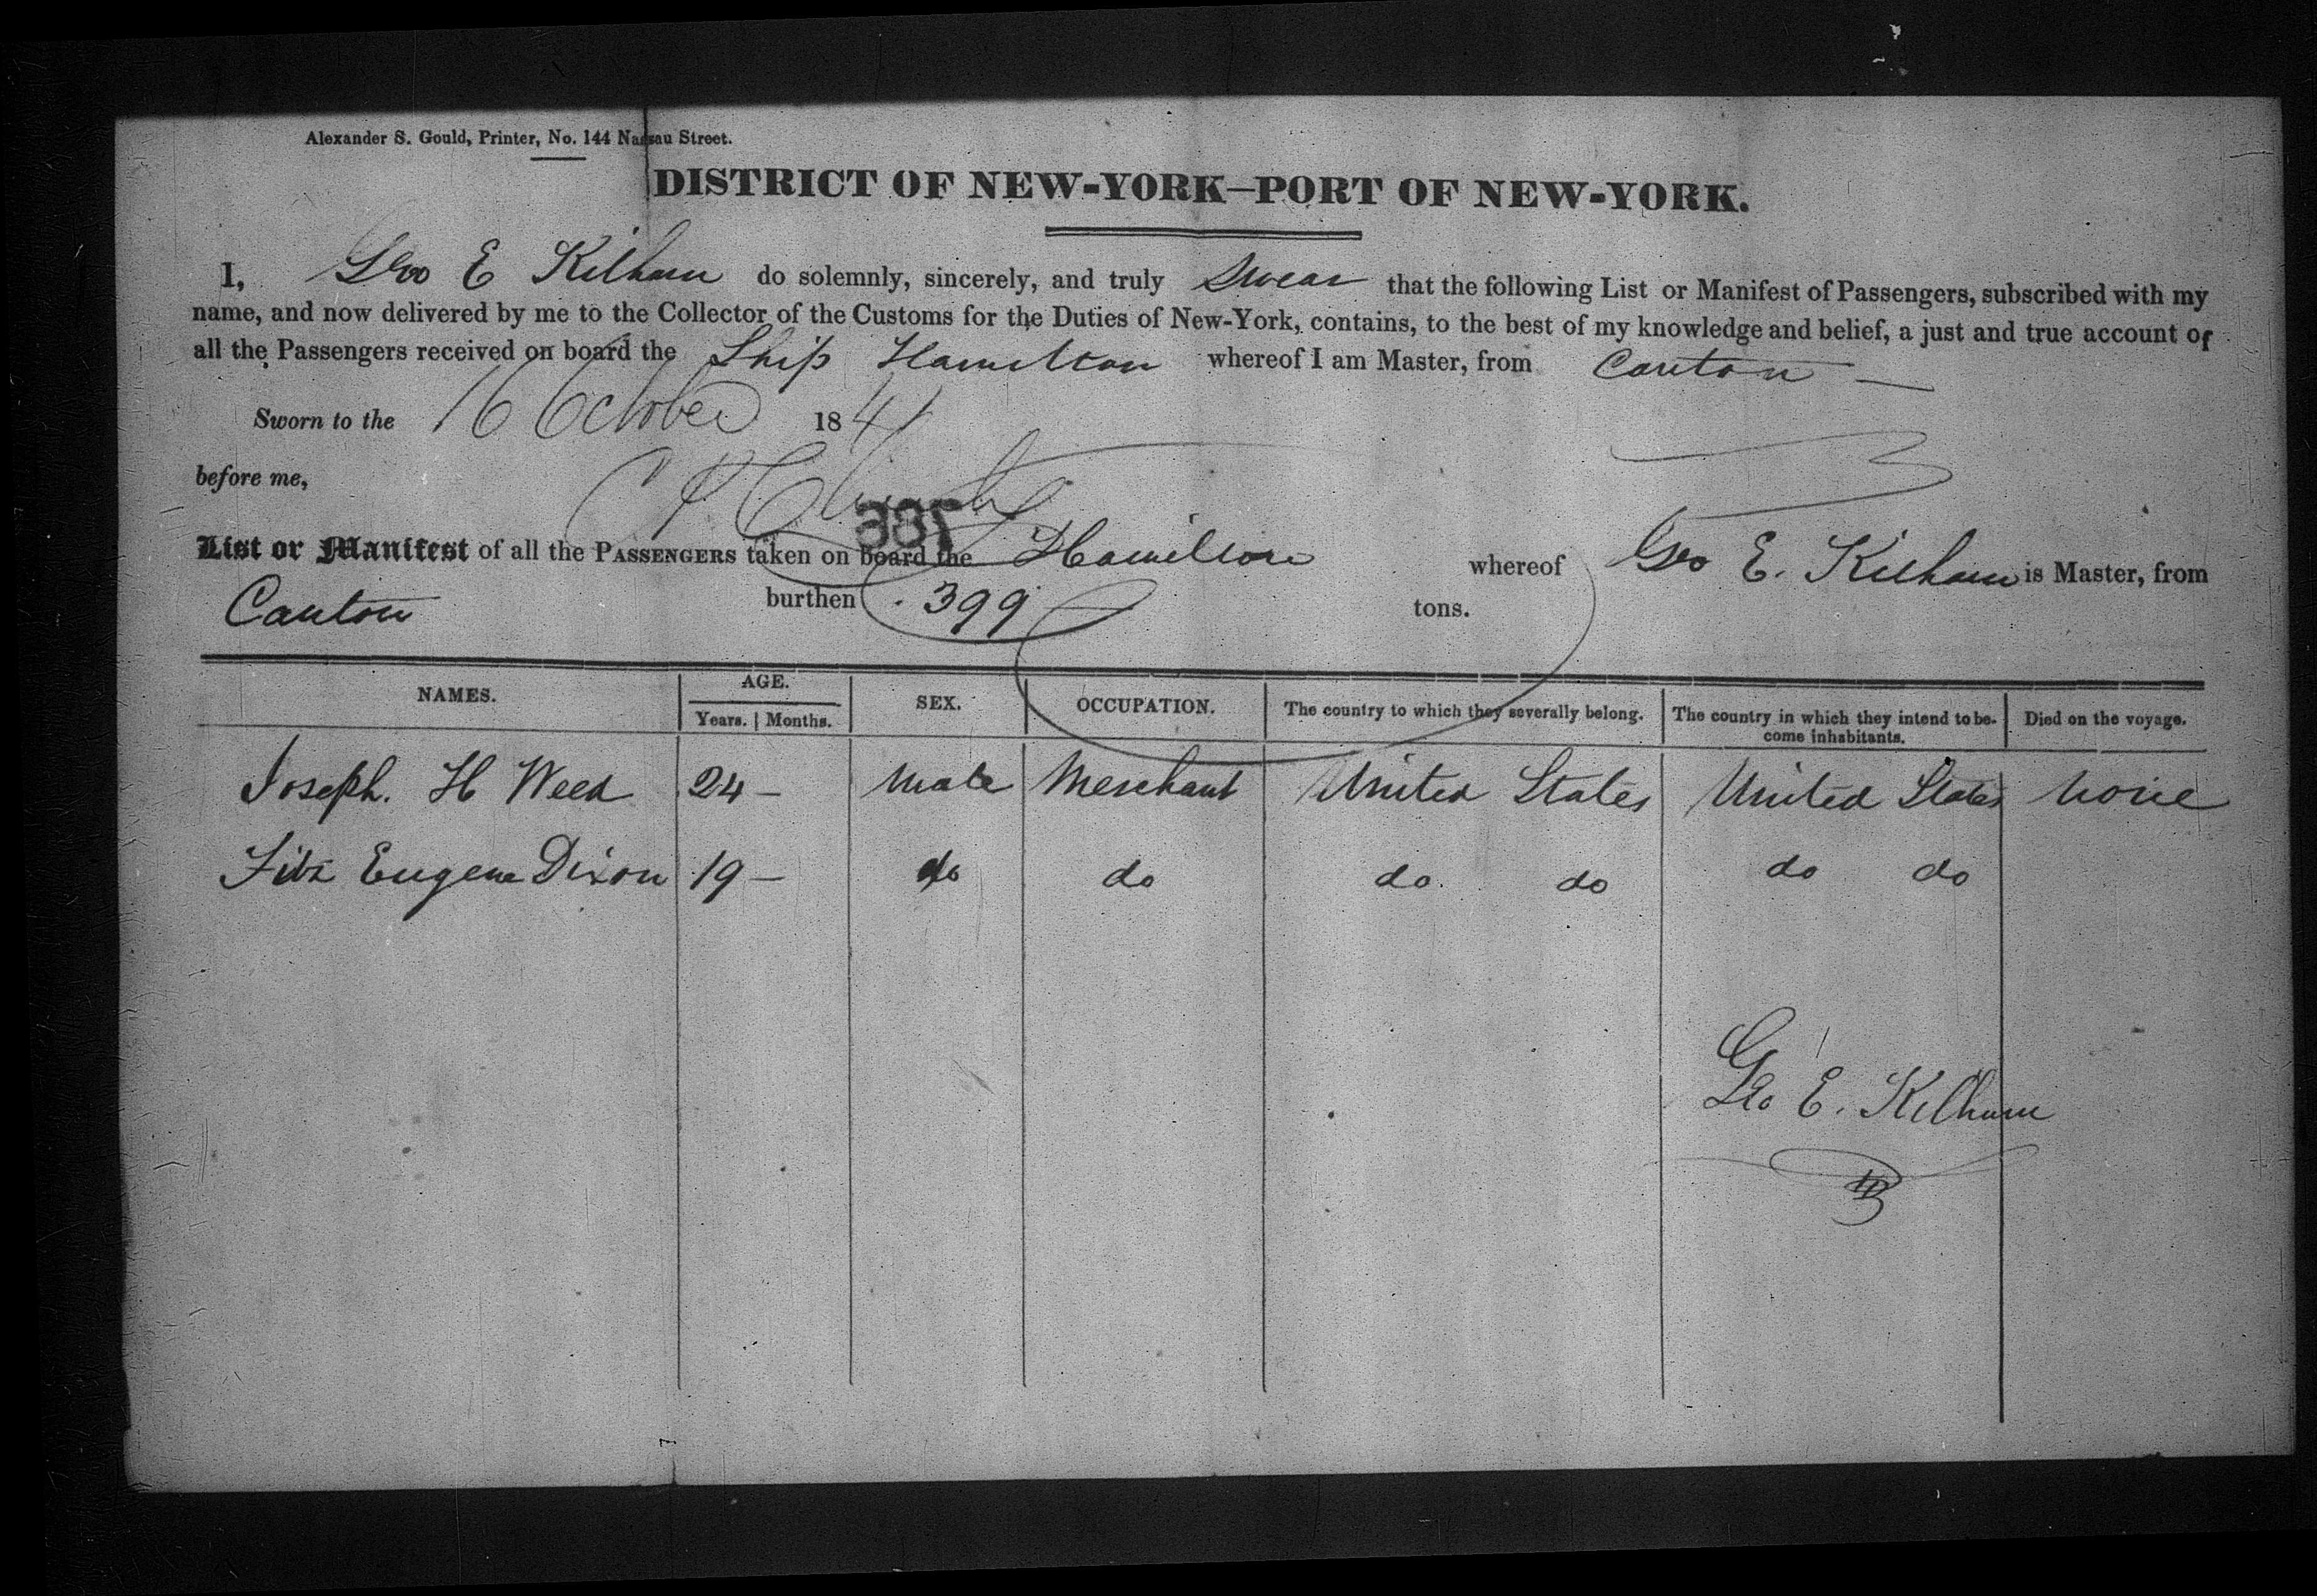 Alexander S. Gould, Printer, No. 144 Nassau Street.
DISTRICT OF NEW-YORK—PORT OF NEW-YORK.
I, Geo E Kilham do solemnly, sincerely, and truly swear that the following List or Manifest of Passengers, subscribed with my
name, and now delivered by me to the Collector of the Customs for the Duties of New-York, contains, to the best of my knowledge and belief, a just and true account of
all the Passengers received on board the Ship Hamilton whereof I am Master, from Canton —
Sworn to the 16 October 1841
before me,
List or Manifest of all the PASSENGERS taken on board the Hamilton whereof Geo E. Kilham is Master, from
Canton burthen 399 tons.
NAMES. AGE. SEX. OCCUPATION. The country to which they severally belong. The country in which they intend to become inhabitants. Died on the voyage.
Years. Months.
Joseph. H Weed 24 — Male Merchant United States United States None
Fitz Eugene Dixon 19 — do do do. do do do
Geo E. Kilham